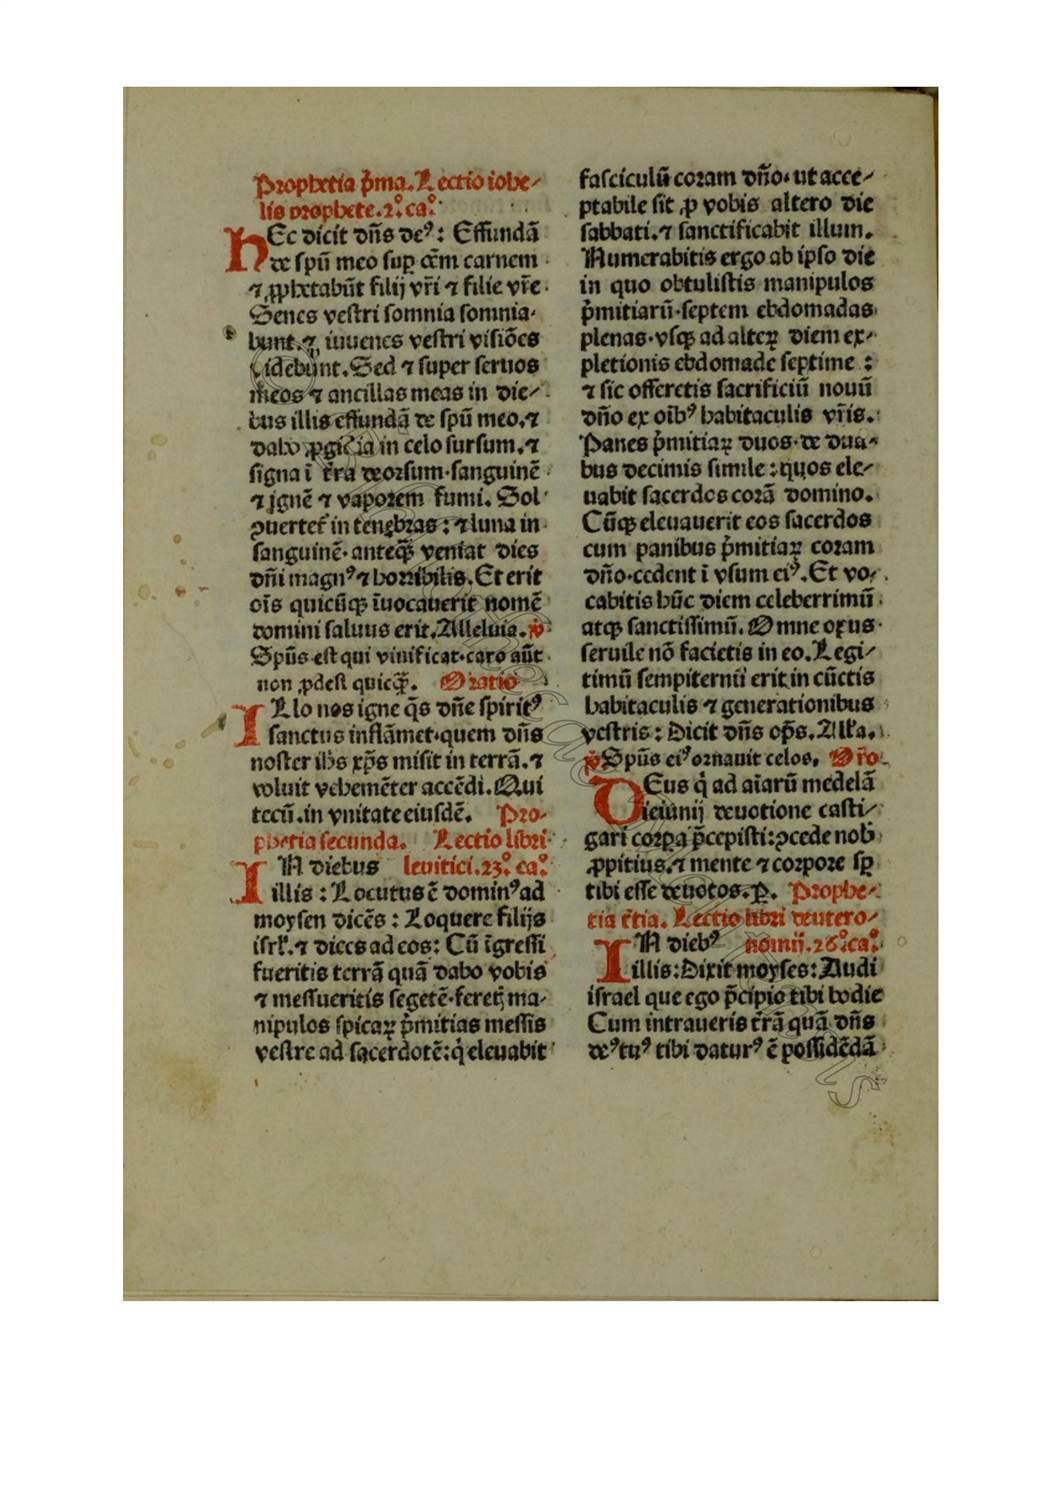 Prophetia p̃ma. Lectio iohe⸗
lis prophete. 2.° ca.°
HEc dicit dñs deꝰ: Effundã
de spũ meo sup oẽm carnem
⁊ ꝓphetabũt filij vr̃i ⁊ filie vr̃e.
Senes vestri somnia somnia⸗
bunt. ⁊ iuuenes vestri visiões
videbunt. Sed ⁊ super seruos
meos ⁊ ancillas meas in die⸗
bus illis effundã de spũ meo. ⁊
dabo ꝓgidia in celo sursum. ⁊
signa ĩ t̃ra deorsum. sanguinẽ
⁊ ignẽ ⁊ vaporem fumi. Sol
ꝯuertet̃ in tenebras: ⁊ luna in
sanguinẽ. anteq̃ꝫ veniat dies
dñi magnꝰ ⁊ horribilis. Et erit
oĩs quicũqꝫ ĩuocauerit nomẽ
domini saluus erit. Alleluia. ℣
Spũs est qui viuificat. caro aũt
non ꝓdest quicq̃ꝫ. Oratio
ILlo nos igne q̃s dñe spiritꝰ
sanctus inflãmet. quem dñs
noster ihs xp̃s misit in terrã. ⁊
voluit vehemẽter accẽdi. Qui
tecũ. in vnitate eiusdẽ. Pro⸗
phetia secunda. Lectio libri
IN diebus leuitici. 23.° ca.°
illis: Locutus ẽ dominꝰ ad
moysen dicẽs: Loquere filijs
isrl̃. ⁊ dices ad eos: Cũ ĩgressi
fueritis terrã quã dabo vobis
⁊ messueritis segetẽ. feretꝭ ma⸗
nipulos spicaꝝ p̃mitias messis
vestre ad sacerdotẽ: q̇ eleuabit
fasciculũ coram dño. ut acce⸗
ptabile sit ꝓ vobis altero die
sabbati. ⁊ sanctificabit illum.
Numerabitis ergo ab ipso die
in quo obtulistis manipulos
p̃mitiarũ. septem ebdomadas
plenas. vsqꝫ ad alteꝝ diem ex⸗
pletionis ebdomade septime:
⁊ sic offeretis sacrificiũ nouũ
dño ex oĩbꝰ habitaculis vr̃is.
Panes p̃mitiaꝝ duos. de dua⸗
bus decimis simile: quos ele⸗
uabit sacerdos corã domino.
Cũqꝫ eleuauerit eos sacerdos
cum panibus p̃mitiaꝝ coram
dño. cedent ĩ vsum eiꝰ. Et vo⸗
cabitis hũc diem celeberrimũ
atqꝫ sanctissimũ. Omne opus
seruile nõ facietis in eo. Legi⸗
timũ sempiternũ erit in cũctis
habitaculis ⁊ generationibus
vestris: dicit dñs op̃s. All'a.
℣ Spũs eiꝰ ornauit celos. Or̃o.
DEus q̇ ad aĩarũ medelã
ieiunij deuotione casti⸗
gari corpa p̃cepisti: ꝯcede nob̃
ꝓpitius. ⁊ mente ⁊ corpore sꝑ
tibi esse deuotos. ꝑ. Prophe⸗
tia t̃tia. Lectio libri deutero⸗
IN diebꝰ nomij. 26.° ca.°
illis: Dixit moyses: Audi
israel que ego p̃cipio tibi hodie
Cum intraueris t̃rã quã dñs
deꝰ tuꝰ tibi daturꝰ ẽ possidẽdã